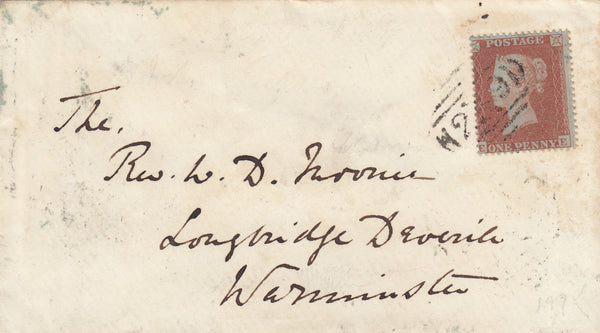 POSTAGE
ONE PENNY
The.
Rev. W. D.
Longbridge Deverill
Warminster